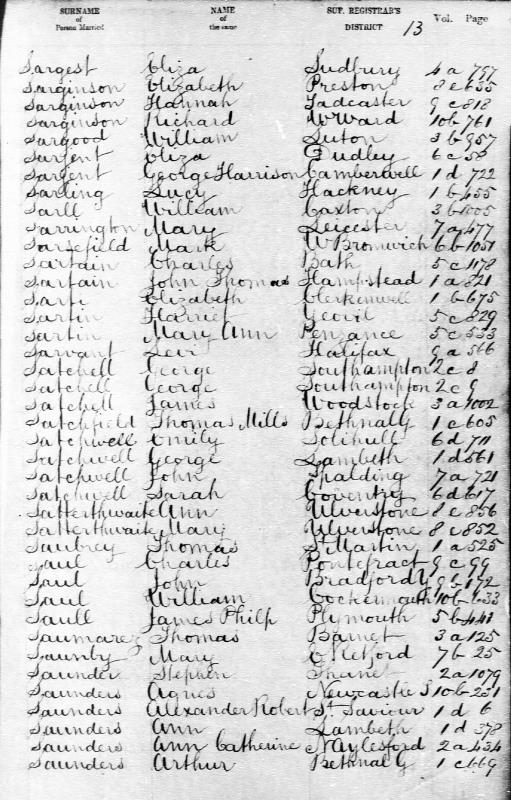 SURNAME NAME SUP. REGISTRAR'S
of of DISTRICT 13 Vol. Page
Person Married the same
Sargest Eliza Sudbury 4a 797
Sarginson Elizabeth Preston 8e 635
Sarginson Hannah Tadcaster 9c 818
Sarginson Richard W Ward 10b 761
Sargood William Luton 3b 957
Sargent Eliza Dudley 6c
Sargent George Harrison Camberwell 1d 722
Sarling Lucy Hackney 1b 455
Sarll William Caxton 3b 1005
Sarrington Mary Leicester 7a 477
Sarsefield Mark W Bromwich 6b 1051
Sartain Charles Bath 5c 1178
Sartain John Thomas Hampstead 1a 821
Sarti Elizabeth Clerkenwell 1b 675
Sartin Harriet Yeovil 5c 829
Sartin Mary Ann Penzance 5c 533
Sarvant Levi Halifax 9a 566
Satchell George Southampton 2c 8
Satchell George Southampton 2c 9
Satchell James Woodstock 3a 1002
Satchfield Thomas Mills Bethnal G 1c 605
Satchwell Emily Solihull 6d 711
Satchwell George Lambeth 1d 561
Satchwell John Spalding 7a 721
Satchwell Sarah Coventry 6d 617
Satterthwaite Ann Ulverstone 8e 856
Satterthwaite Mary Ulverstone 8e 852
Saubrey Thomas St Martin 1a 525
Saul Charles Pontefract 9c 99
Saul John Bradford Y 9b 172
Saul William Cockermouth 10b 633
Saull James Philp Plymouth 5b 441
Saumarez Thomas Barnet 3a 125
Saunby Mary E Retford 7b 25
Saunder Stephen Thanet 2a 1079
Saunders Agnes Newcastle 10b 231
Saunders Alexander Robert St Saviour 1d 6
Saunders Ann Lambeth 1d 378
Saunders Ann Catherine N Aylesford 2a 434
Saunders Arthur Bethnal G 1c 669